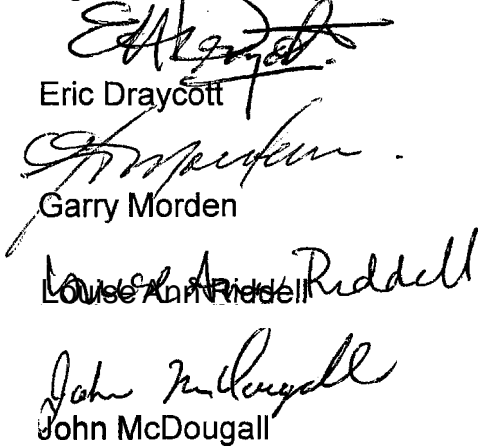 Eric Draycott
Garry Morden
Louise Ann Riddell
Louise Ann Riddell
John McDougall
John McDougall